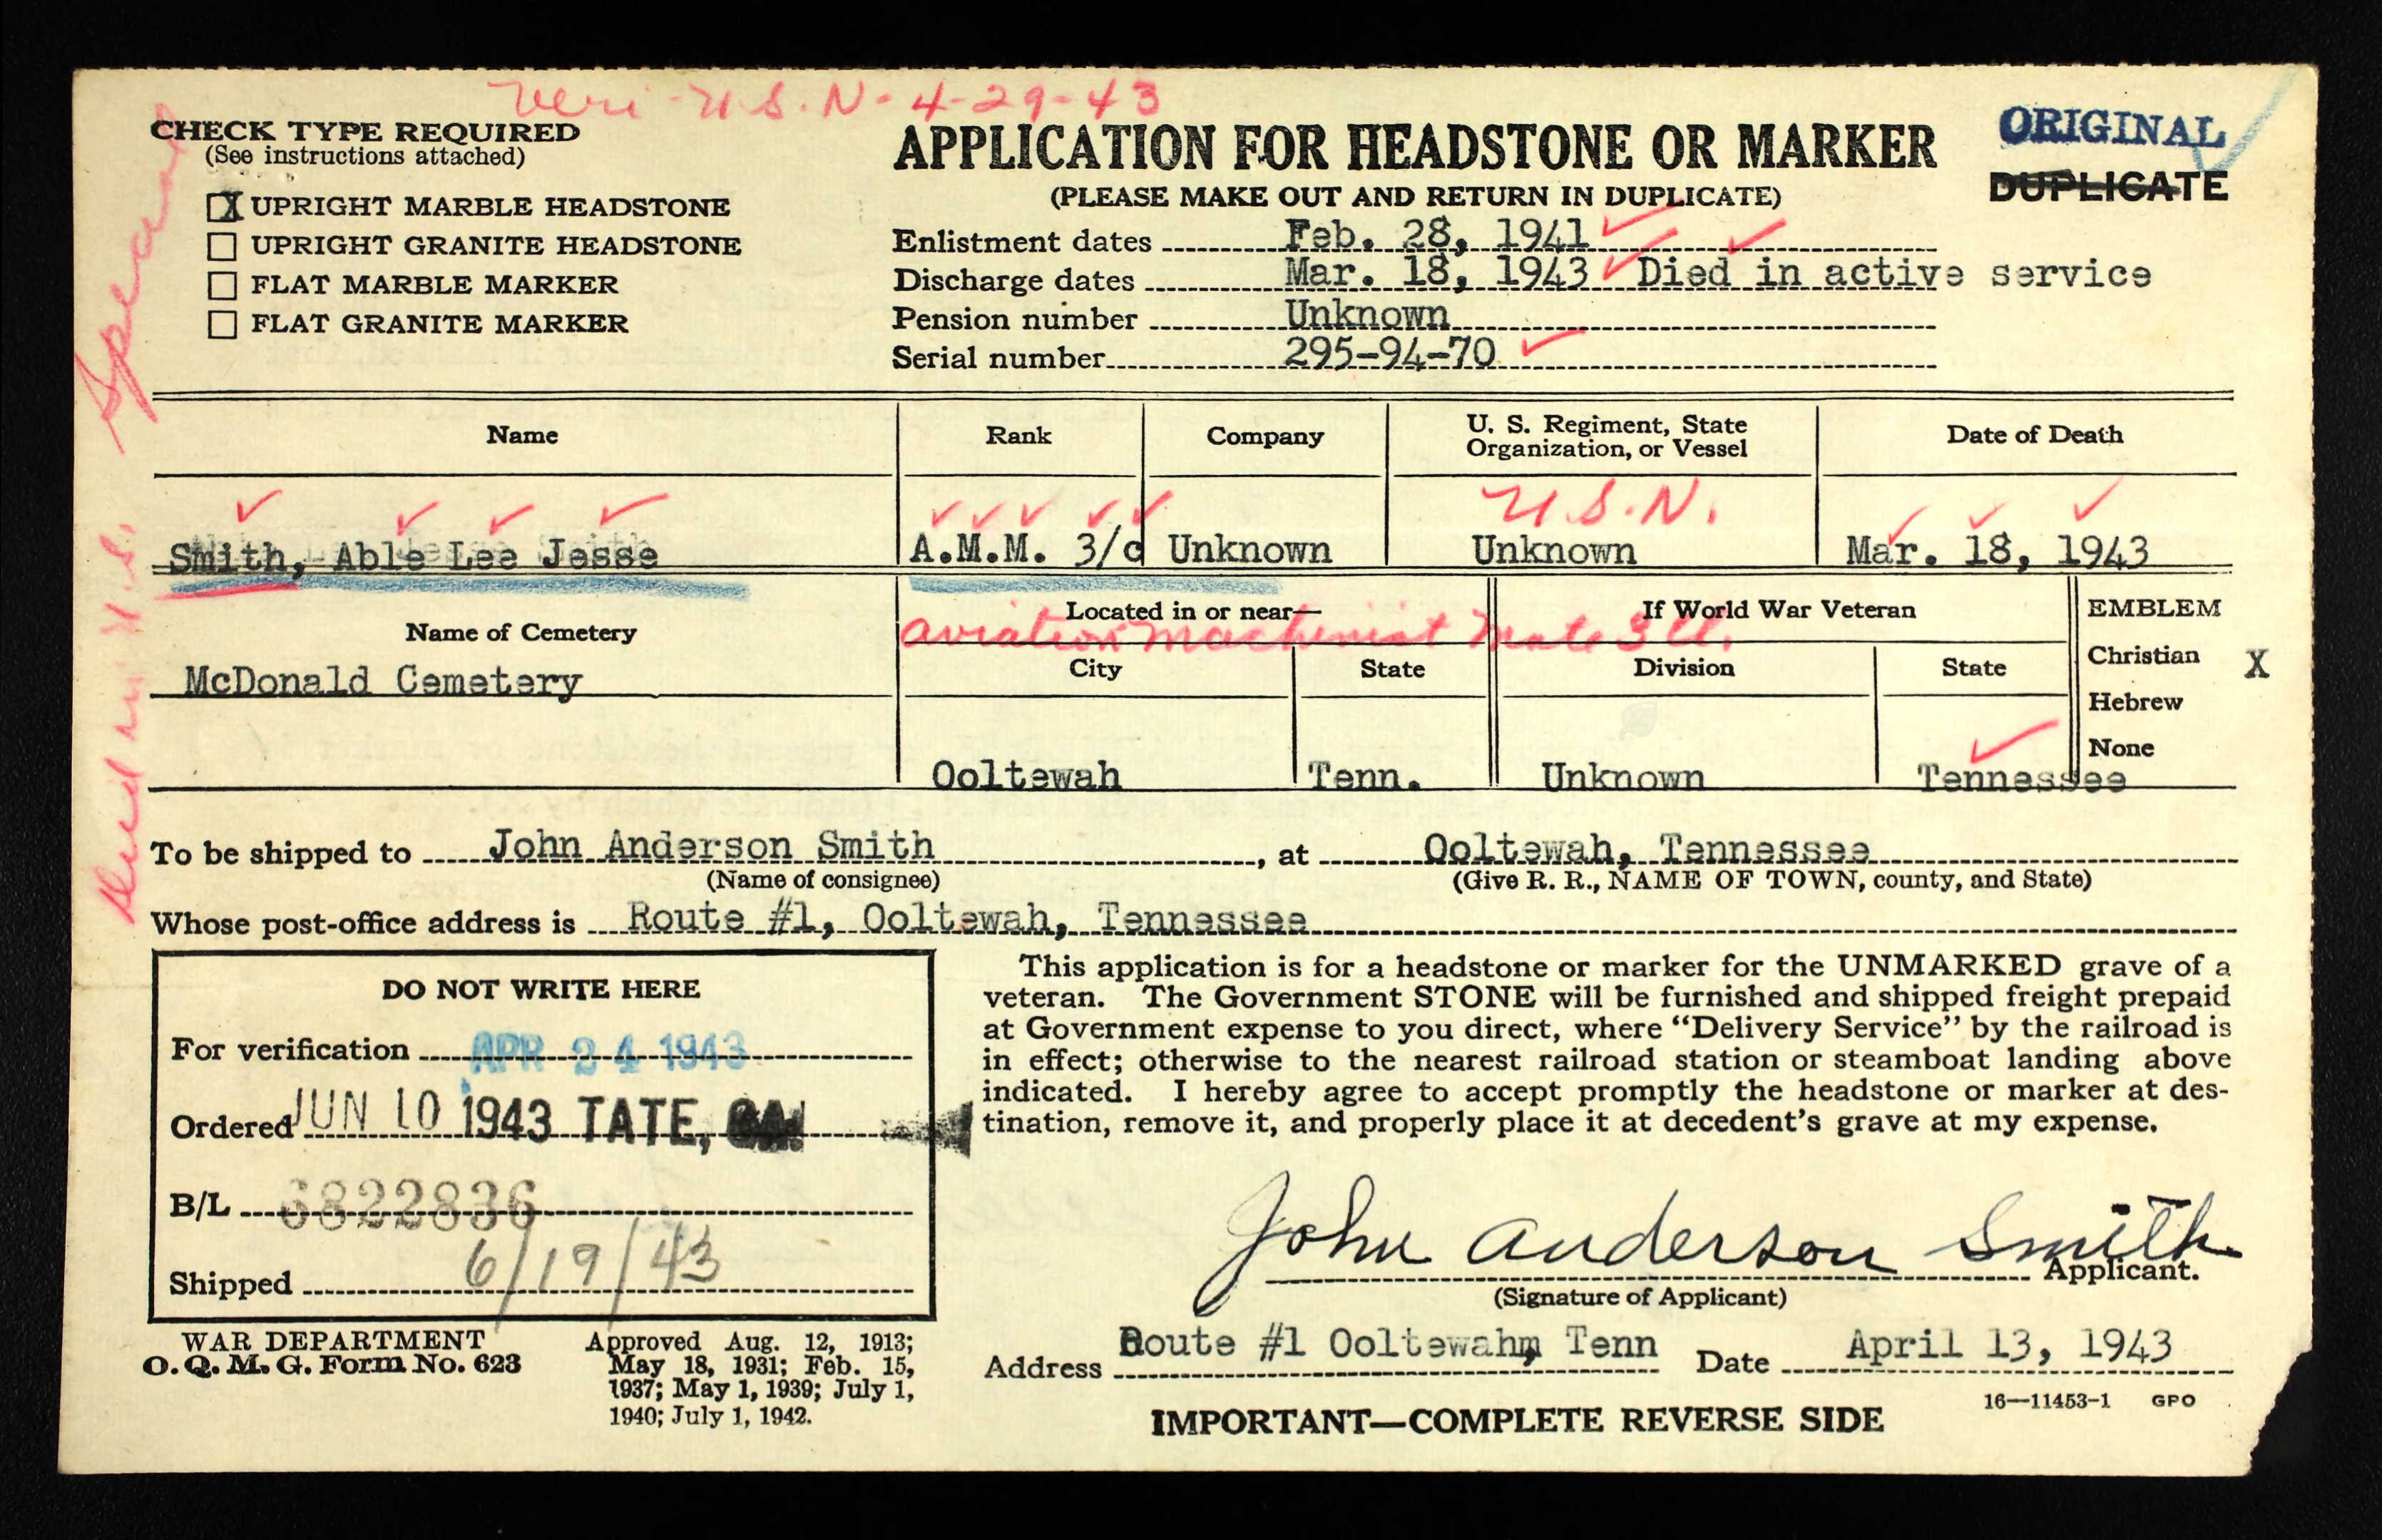 Veri - U.S.N - 4-29-43
CHECK TYPE REQUIRED
(See instructions attached)
X UPRIGHT MARBLE HEADSTONE
UPRIGHT GRANITE HEADSTONE
FLAT MARBLE MARKER
FLAT GRANITE MARKER
APPLICATION FOR HEADSTONE OR MARKER
(PLEASE MAKE OUT AND RETURN IN DUPLICATE)
ORIGINAL
DUPLICATE
Enlistment dates Feb. 28, 1941
Discharge dates Mar. 18, 1943 Died in active service
Pension number Unknown
Serial number 295-94-70
Name Rank Company U. S. Regiment, State Organization, or Vessel Date of Death
U.S.N.
Smith, Able Lee Jesse A.M.M. 3/c Unknown Unknown Mar. 18, 1943
Name of Cemetery
McDonald Cemetery
Located in or near—
Aviation Machinist Mate 3 cl.
City State
Ooltewah Tenn.
If World War Veteran
Division State
Unknown Tennessee
EMBLEM
Christian X
Hebrew
None
Died in U.S.
To be shipped to John Anderson Smith, at Ooltewah, Tennessee
(Name of consignee) (Give R. R., NAME OF TOWN, county, and State)
Whose post-office address is Route #1, Ooltewah, Tennessee
DO NOT WRITE HERE
For verification APR 24 1943
Ordered JUN 10 1943 TATE, GA.
B/L 6822836
Shipped 6/19/43
WAR DEPARTMENT
O. Q. M. G. Form No. 623
Approved Aug. 12, 1913;
May 18, 1931; Feb. 15,
1937; May 1, 1939; July 1,
1940; July 1, 1942.
This application is for a headstone or marker for the UNMARKED grave of a
veteran. The Government STONE will be furnished and shipped freight prepaid
at Government expense to you direct, where "Delivery Service" by the railroad is
in effect; otherwise to the nearest railroad station or steamboat landing above
indicated. I hereby agree to accept promptly the headstone or marker at des-
tination, remove it, and properly place it at decedent's grave at my expense.
John Anderson Smith
Applicant.
(Signature of Applicant)
Address Route #1 Ooltewah, Tenn Date April 13, 1943
16—11453-1 GPO
IMPORTANT—COMPLETE REVERSE SIDE